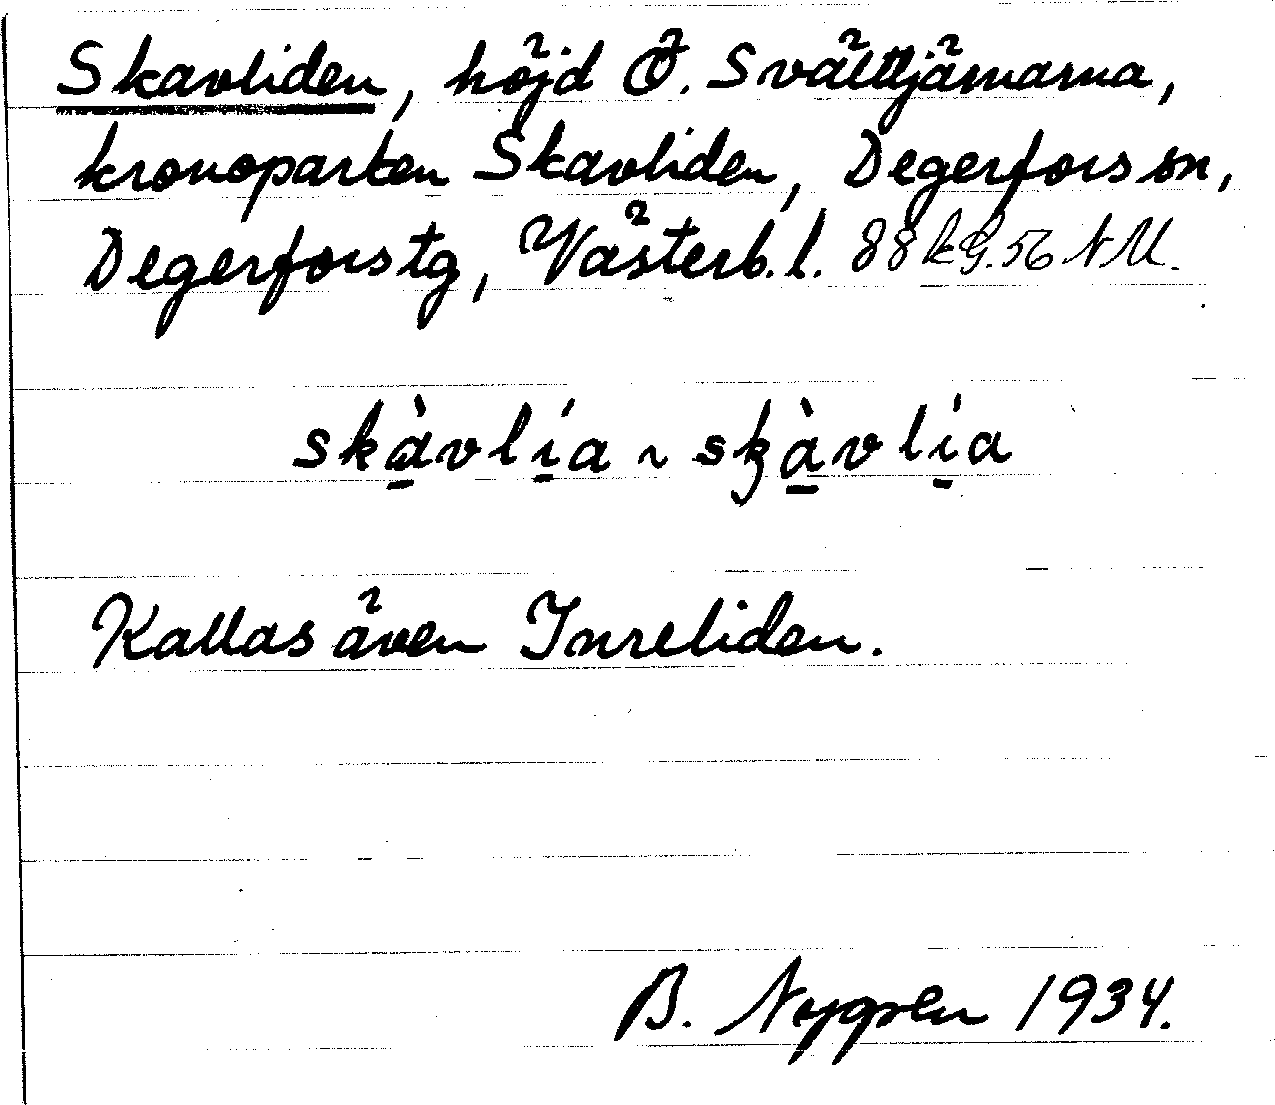 Skavliden, höjd Ö. Svälttjärnarna,
kronoparken Skavliden, Degerfors sn,
Degerfors tg, Västerb. l. 88 kg. 56 NM.
skàvlía ~ skàvlía
Kallas även Inreliden.
B. Nygren 1934.